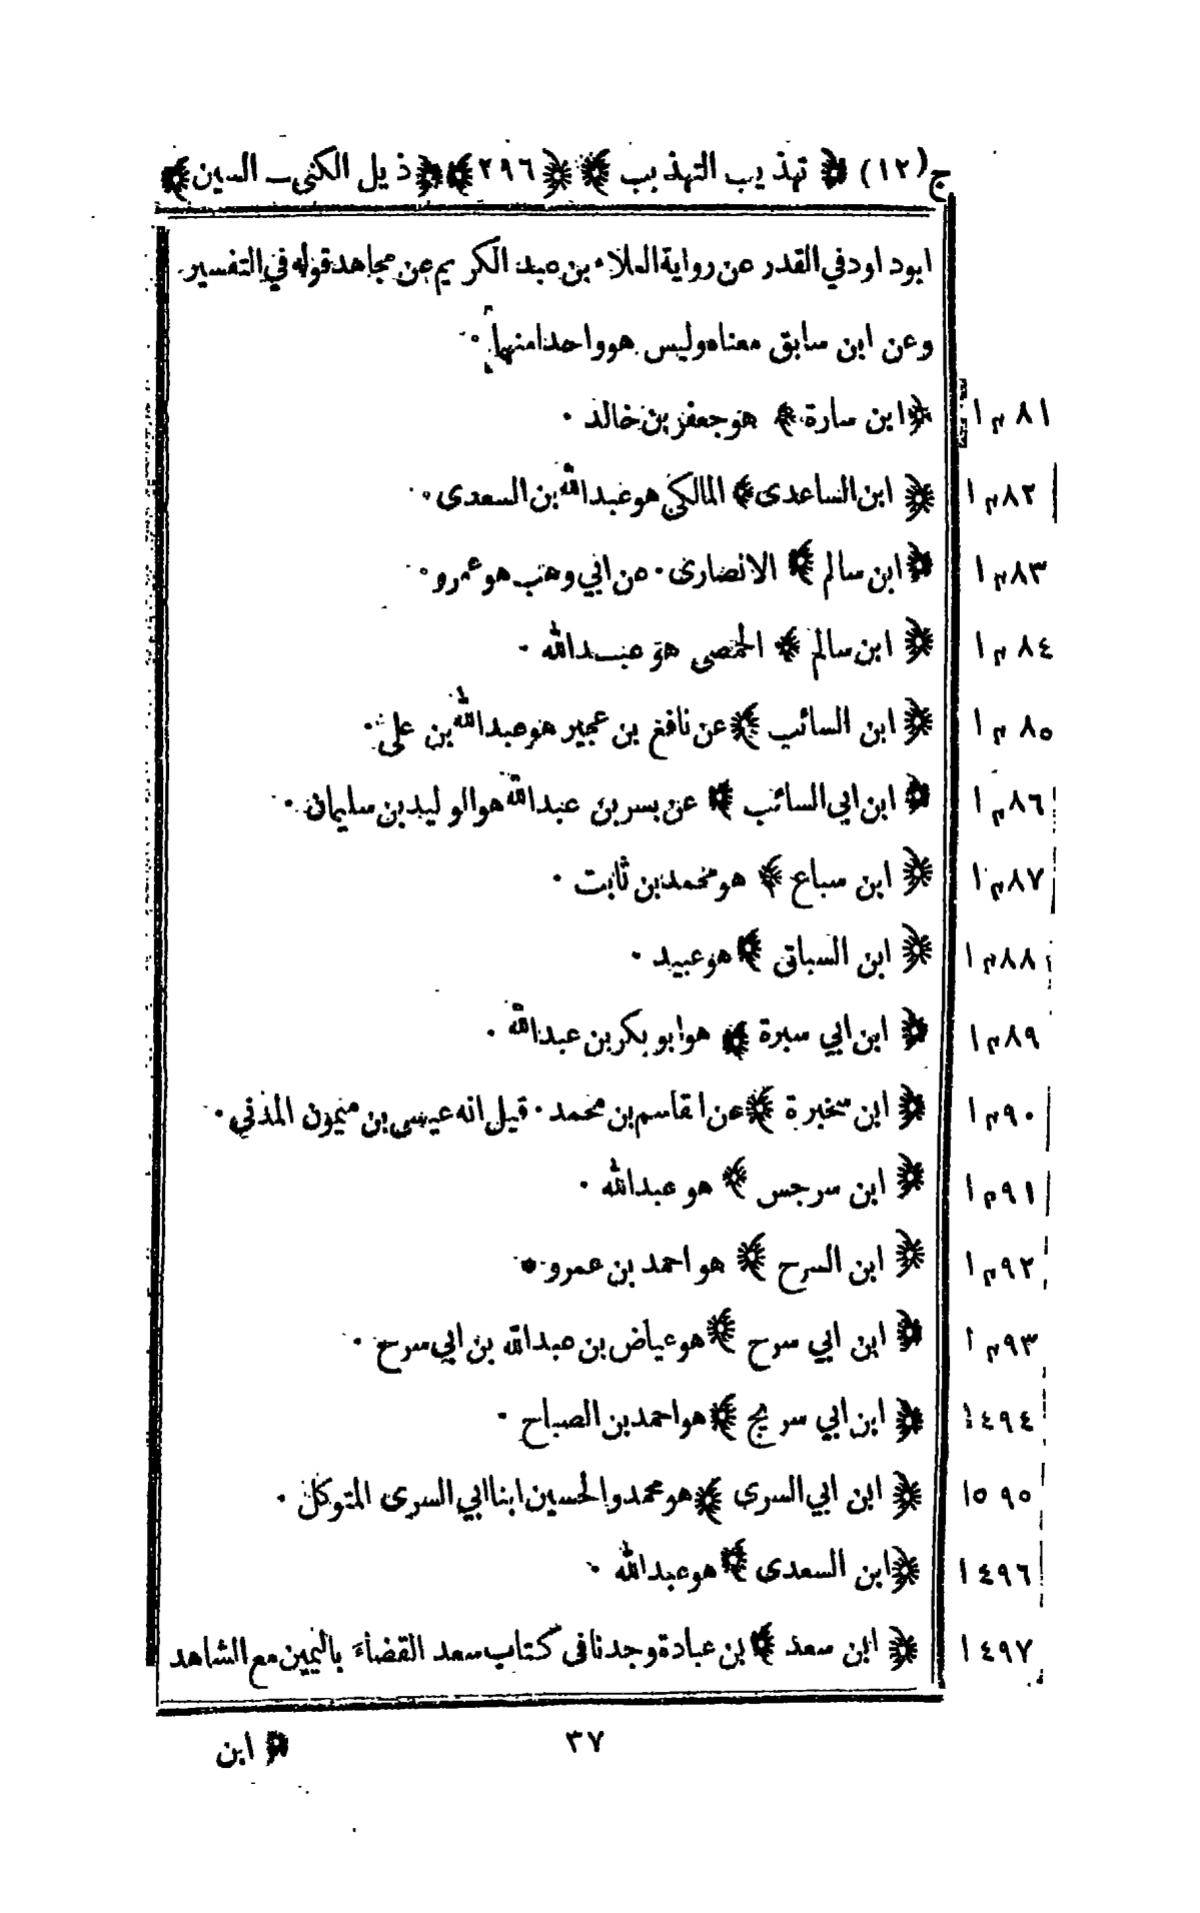 ج (١٢) ﴿ تهذيب التهذيب ﴾ ﴿ ٢٩٦ ﴾ ﴿ ذيل الكنى ـ السين ﴾
ابو داود في القدر من رواية العلاء بن عبد الكريم عن مجاهد قوله في التفسير
وعن ابن سابق معناه وليس هو واحدا منها ·
١٤٨١ ﴿ ابن سارة ﴾ هو جعفر بن خالد ·
١٤٨٢ ﴿ ابن الساعدى ﴾ المالكي هو عبدالله بن السعدى ·
١٤٨٣ ﴿ ابن سالم ﴾ الانصارى · عن ابي وهب هو عمرو ·
١٤٨٤ ﴿ ابن سالم ﴾ الحمصي هو عبدالله ·
١٤٨٥ ﴿ ابن السائب ﴾ عن نافع بن عجير هو عبدالله بن على ·
١٤٨٦ ﴿ ابن ابي السائب ﴾ عن بسر بن عبدالله هو الوليد بن سليمان ·
١٤٨٧ ﴿ ابن سباع ﴾ هو محمد بن ثابت ·
١٤٨٨ ﴿ ابن السباق ﴾ هو عبيد ·
١٤٨٩ ﴿ ابن ابي سبرة ﴾ هو ابو بكر بن عبدالله ·
١٤٩٠ ﴿ ابن سخبرة ﴾ عن القاسم بن محمد · قيل انه عيسى بن ميمون المدني ·
١٤٩١ ﴿ ابن سرجس ﴾ هو عبدالله ·
١٤٩٢ ﴿ ابن السرح ﴾ هو احمد بن عمرو ·
١٤٩٣ ﴿ ابن ابي سرح ﴾ هو عياض بن عبدالله بن ابي سرح ·
١٤٩٤ ﴿ ابن ابي سريج ﴾ هو احمد بن الصباح ·
١٥٩٥ ﴿ ابن ابي السرى ﴾ هو محمد والحسين ابنا ابي السرى المتوكل ·
١٤٩٦ ﴿ ابن السعدى ﴾ هو عبدالله ·
١٤٩٧ ﴿ ابن سعد ﴾ بن عبادة وجدنا في كتاب سعد القضاء باليمين مع الشاهد
٣٧
﴿ ابن